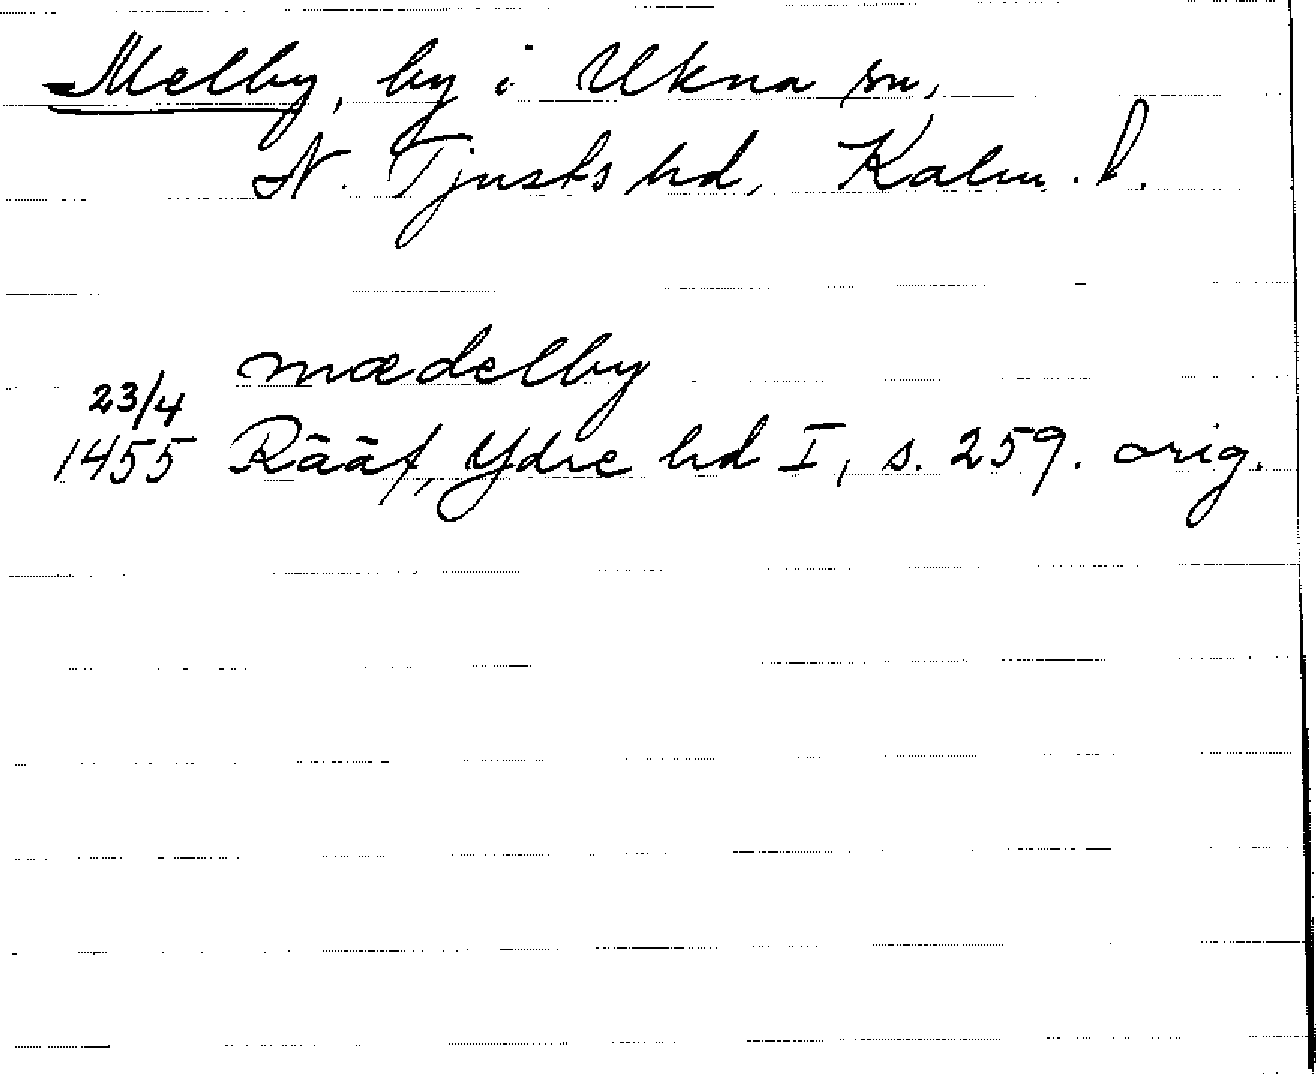 Melby, by i Ukna sn,
N. Tjusts hd, Kalm. l.
mædelby
23/4
1455 Rääf, Ydre hd I, s. 259. orig.